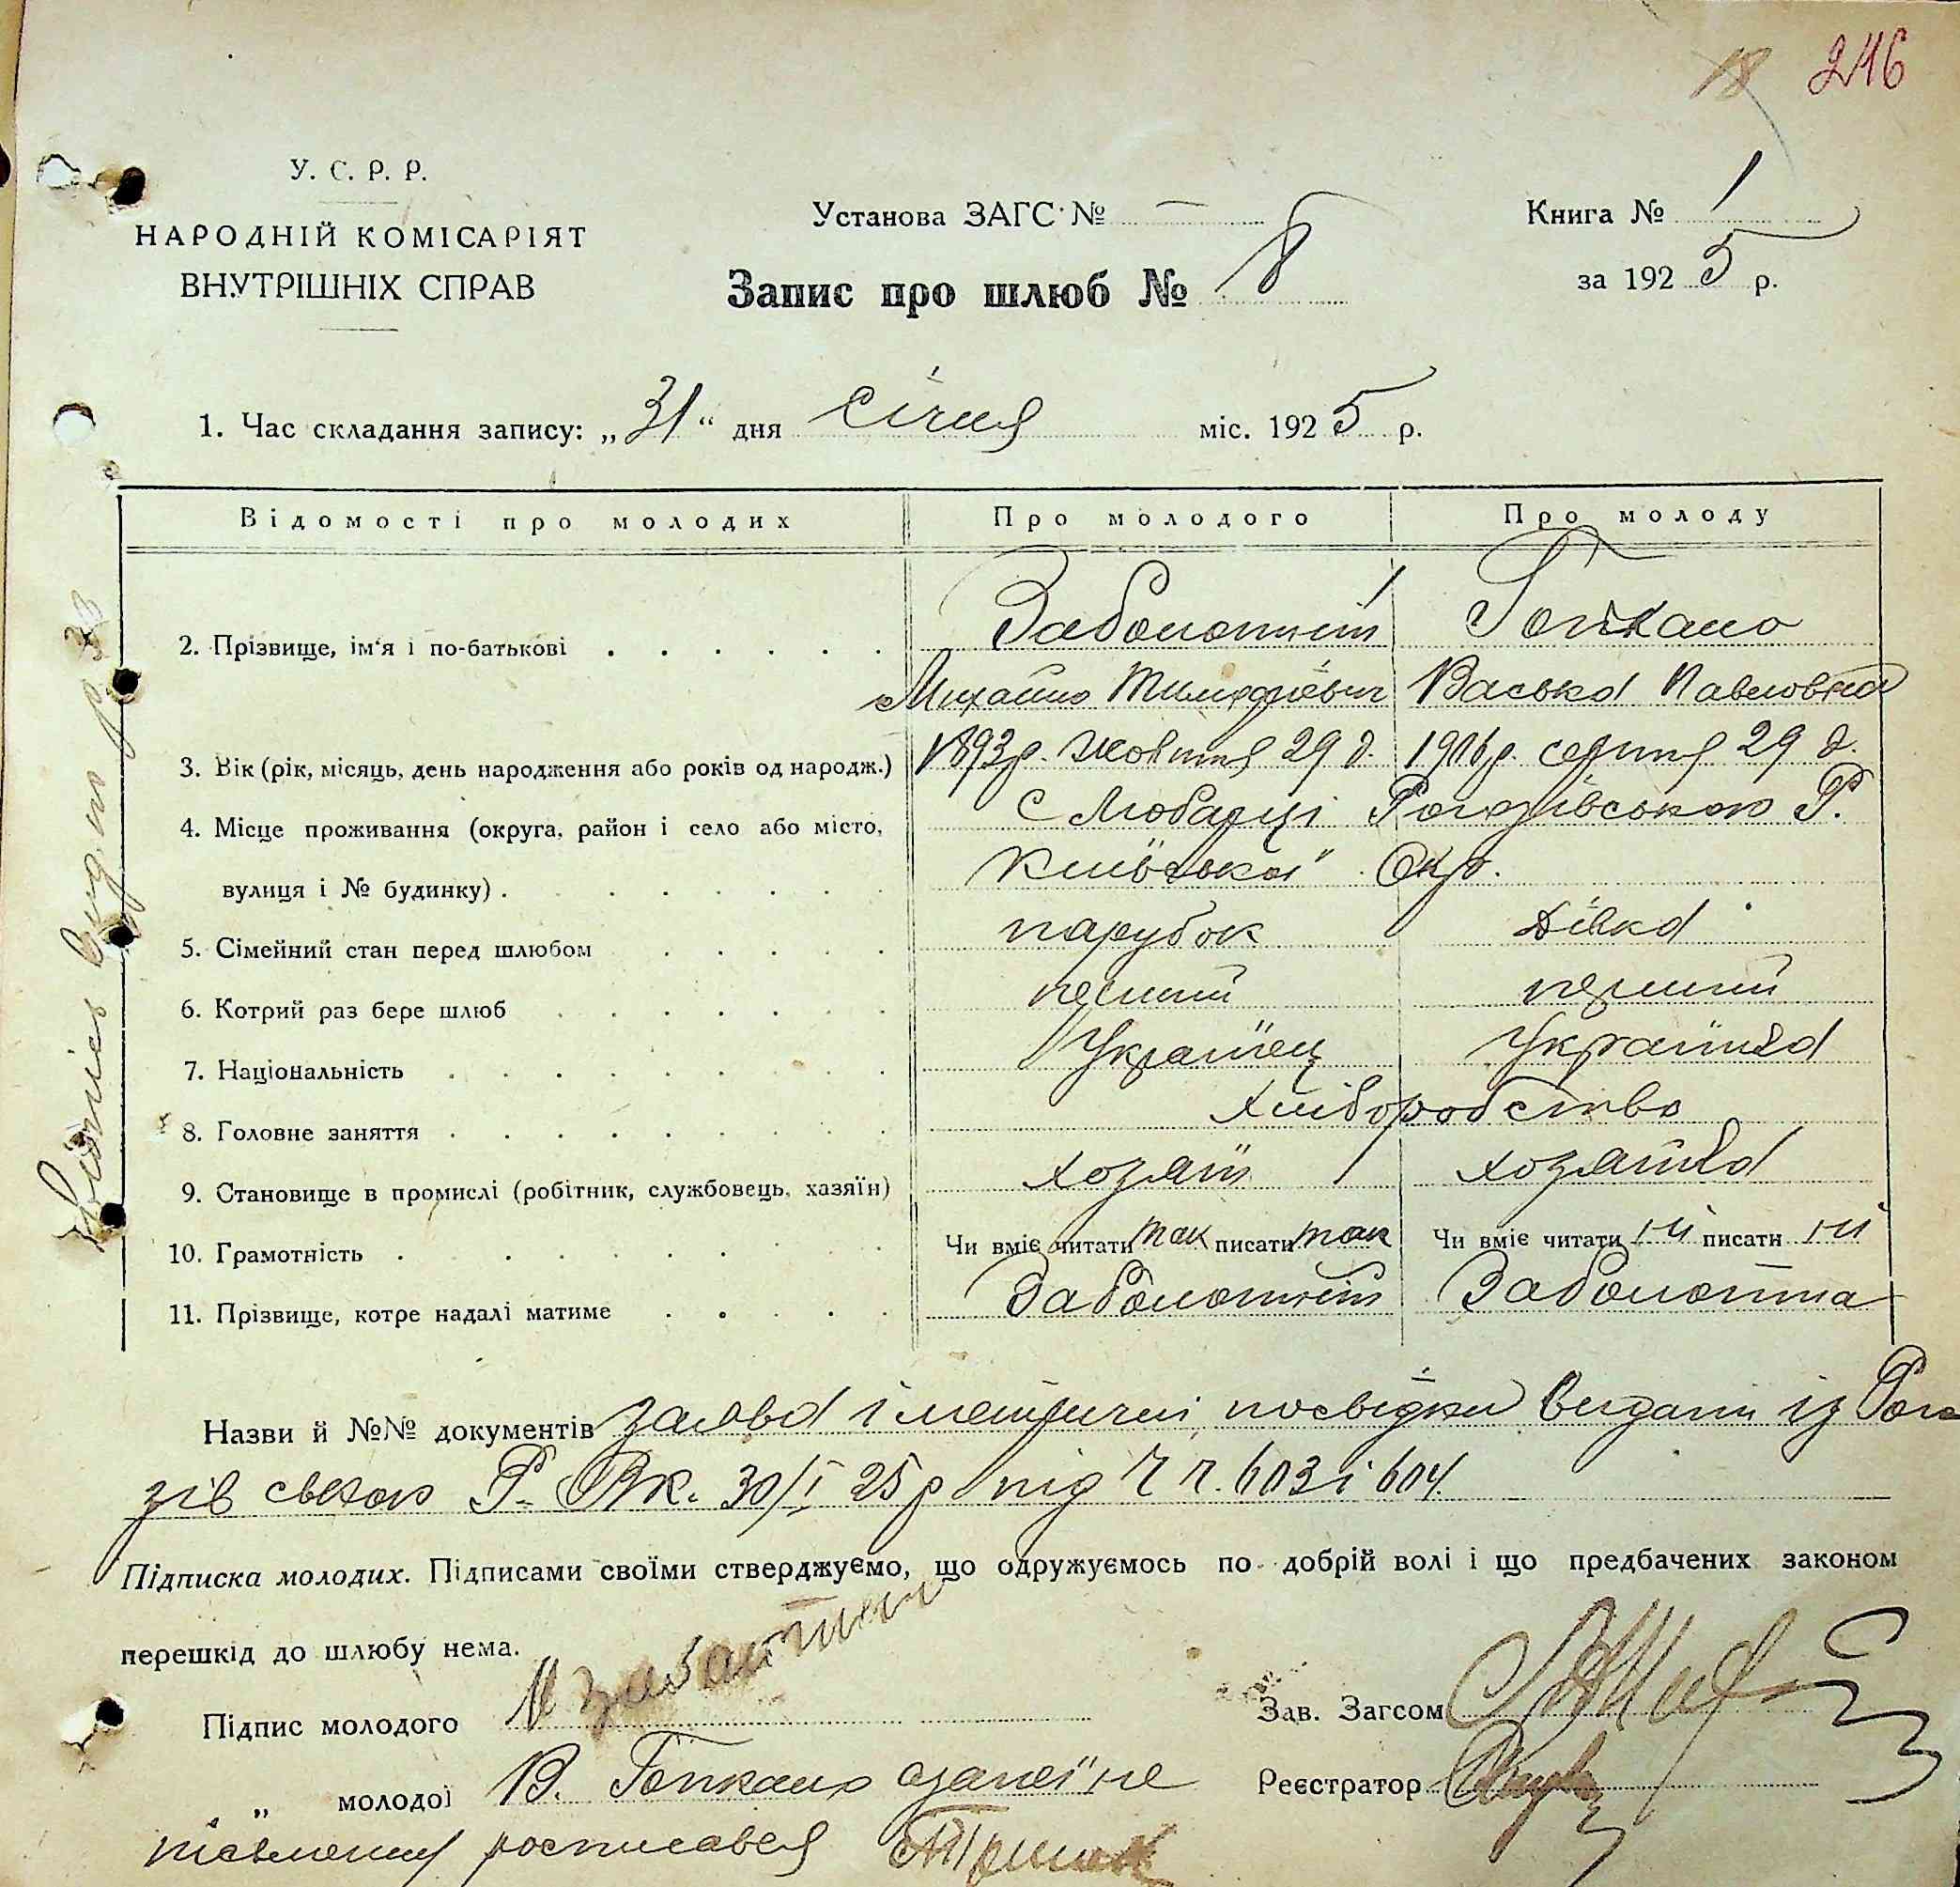 18 246
У. С. Р. Р.
НАРОДНІЙ КОМІСАРІЯТ
ВНУТРІШНІХ СПРАВ
Установа ЗАГС № —
Книга № 1
за 1925 р.
Запис про шлюб № 8
1. Час складання запису: „31“ дня січня міс. 1925 р.
Відомості про молодих Про молодого Про молоду
2. Прізвище, ім'я і по-батькові Заболотній Гопкало
Михайло Тимофієвич Васька Павловна
3. Вік (рік, місяць, день народження або років од народж.) 1893р. жовтня 29 д. 1906р. серпня 29 д.
4. Місце проживання (округа, район і село або місто, с Любарці Рогозівського Р.
вулиця і № будинку) Київської Окр.
5. Сімейний стан перед шлюбом парубок дівка
6. Котрий раз бере шлюб перший перший
7. Національність Українец Українка
8. Головне заняття хліборобство
9. Становище в промислі (робітник, службовець, хазяїн) хозяїн хозяйка
10. Грамотність Чи вміє читати так писати так Чи вміє читати ні писати ні
11. Прізвище, котре надалі матиме Заболотній Заболотна
Назви й №№ документів заява і метричні посвідки видані із Рого
зівського Р. В.К. 30/I 25 р під Ч ч. 603 і 604.
Підписка молодих. Підписами своїми стверджуємо, що одружуємось по добрій волі і що предбачених законом
перешкід до шлюбу нема.
Підпис молодого М
Зав. Загсом
„ молодої В. Гопкало за неї не
Реєстратор
письменну росписався